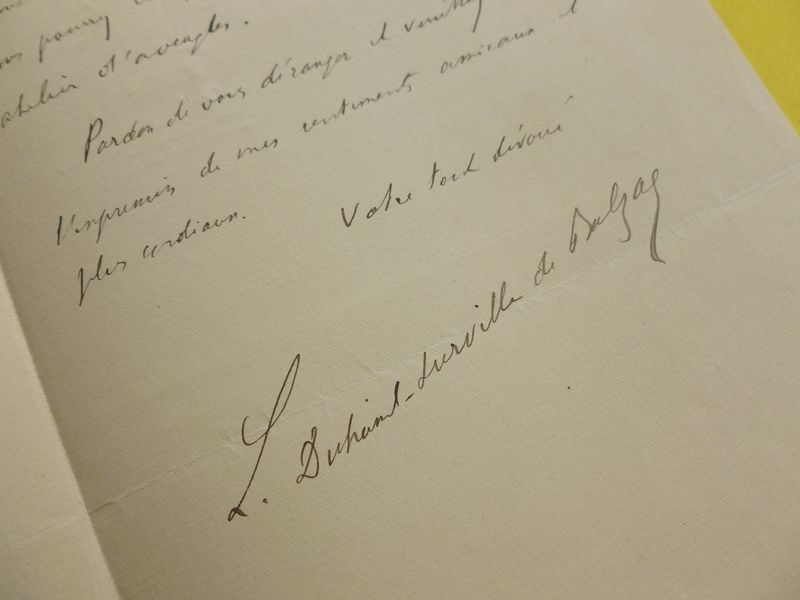 pourrez
atelier d'aveugles.
Pardon de vous déranger et veuillez
l'expression de mes sentiments amicaux et
plus cordiaux.
Votre tout dévoué
L. Duhamel-Surville de Balzac